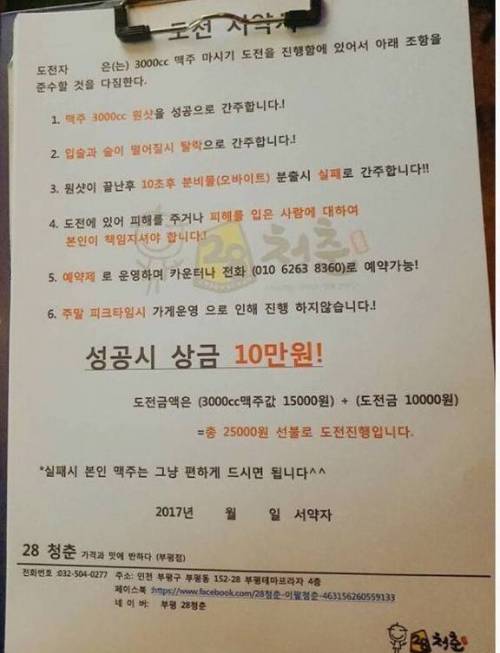 도전 서약서
도전자 은(는) 3000cc 맥주 마시기 도전을 진행함에 있어서 아래 조항을
준수할 것을 다짐한다.
1. 맥주 3000cc 원샷을 성공으로 간주합니다.!
2. 입술과 술이 떨어질시 탈락으로 간주합니다.!
3. 원샷이 끝난후 10초후 분비물(오바이트) 분출시 실패로 간주합니다!!
4. 도전에 있어 피해를 주거나 피해를 입은 사람에 대하여
본인이 책임지셔야 합니다.!
28 청춘
5. 예약제 로 운영하며 카운터나 전화 (010 6263 8360)로 예약가능!
6. 주말 피크타임시 가게운영 으로 인해 진행 하지않습니다.!
성공시 상금 10만원!
도전금액은 (3000cc맥주값 15000원) + (도전금 10000원)
=총 25000원 선불로 도전진행입니다.
*실패시 본인 맥주는 그냥 편하게 드시면 됩니다^^
2017년 월 일 서약자
28 청춘 가격과 맛에 반하다 (부평점)
전화번호 :032-504-0277 주소: 인천 부평구 부평동 152-28 부평테마프라자 4층
페이스북 :https://www.facebook.com/28청춘-이팔청춘-463156260559133
네 이 버: 부평 28청춘
28 청춘